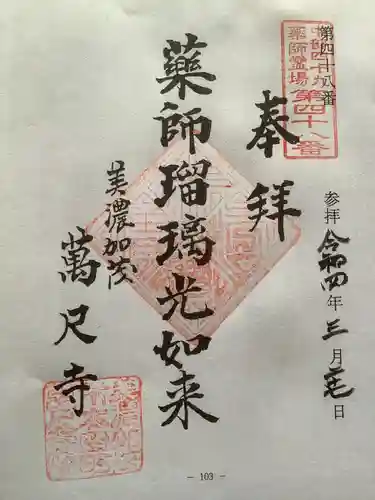 第四十八番
中部四十九
薬師霊場第四十八番
奉拝
参拝 令和四年 三月 日
薬師瑠璃光如来
美濃加茂
萬尺寺
– 103 –